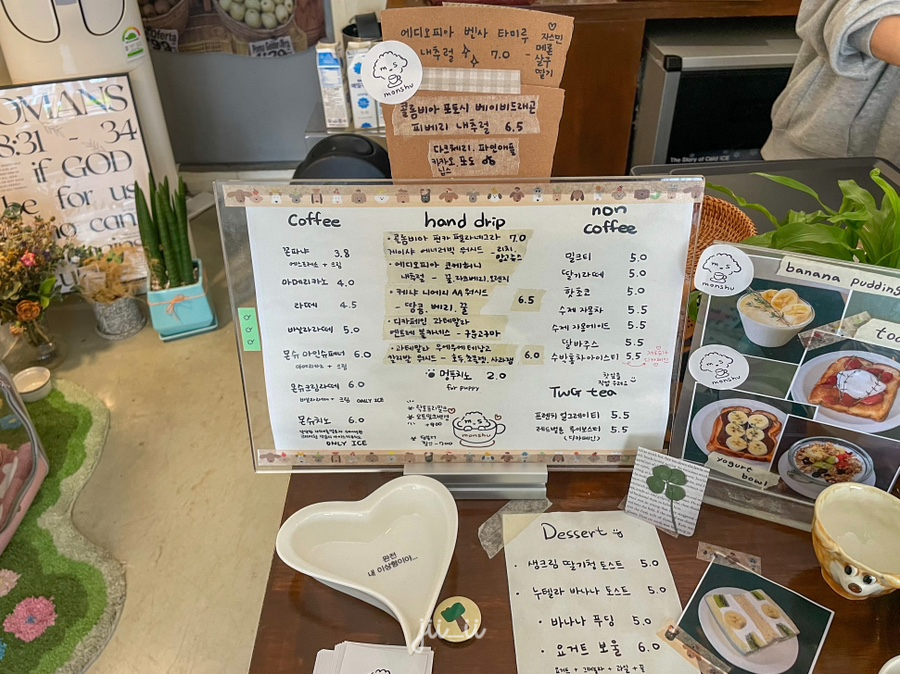 OMANS
8:31 - 34
if GOD
be for us
who can
에디오피아 벤사 타미루
내추럴 7.0
자스민
메론
살구
딸기
monshu
콜롬비아 포토시 베이비드래곤
피베리 내추럴 6.5
다크체리, 파인애플
카카오 포도
닙스
The Story of Cold ICE
Coffee
꼰파냐 3.8
에스프레소 + 크림
아메리카노 4.0
라떼 4.5
바닐라라떼 5.0
몬슈 아인슈페너 6.0
아메리카노 + 크림
몬슈크림라떼 6.0
바닐라라떼 + 크림 ONLY ICE
몬슈치노 6.0
ONLY ICE
hand drip
· 콜롬비아 핀카 7.0
게이샤 워시드 - 리치,
· 에디오피아 코케허니
내추럴 - 꿀, 자스민, 오렌지
· 케냐 니에리 AA 워시드 6.5
- 땅콩, 베리, 꿀
· 디카페인 과테말라
· 과테말라 우에우에테낭고
워시드 - 호두, 초콜렛, 사과잼 6.0
멍푸치노 2.0
for puppy
m_s
monshu
non
coffee
밀크티 5.0
딸기라떼 5.0
핫초코 5.0
수제 자몽차 5.5
수제 자몽에이드 5.5
5.5
5.5
TWG tea
프렌치 얼그레이티 5.5
5.5
(디카페인)
monshu
monshu
banana pudding
toa
yogurt
bowl
완전
내 이상형이야...
Dessert
· 생크림 딸기잼 토스트 5.0
· 누텔라 바나나 토스트 5.0
· 바나나 푸딩 5.0
· 요거트 보울 6.0
요거트 + 그래놀라 + 과일 + 꿀
jii_ii